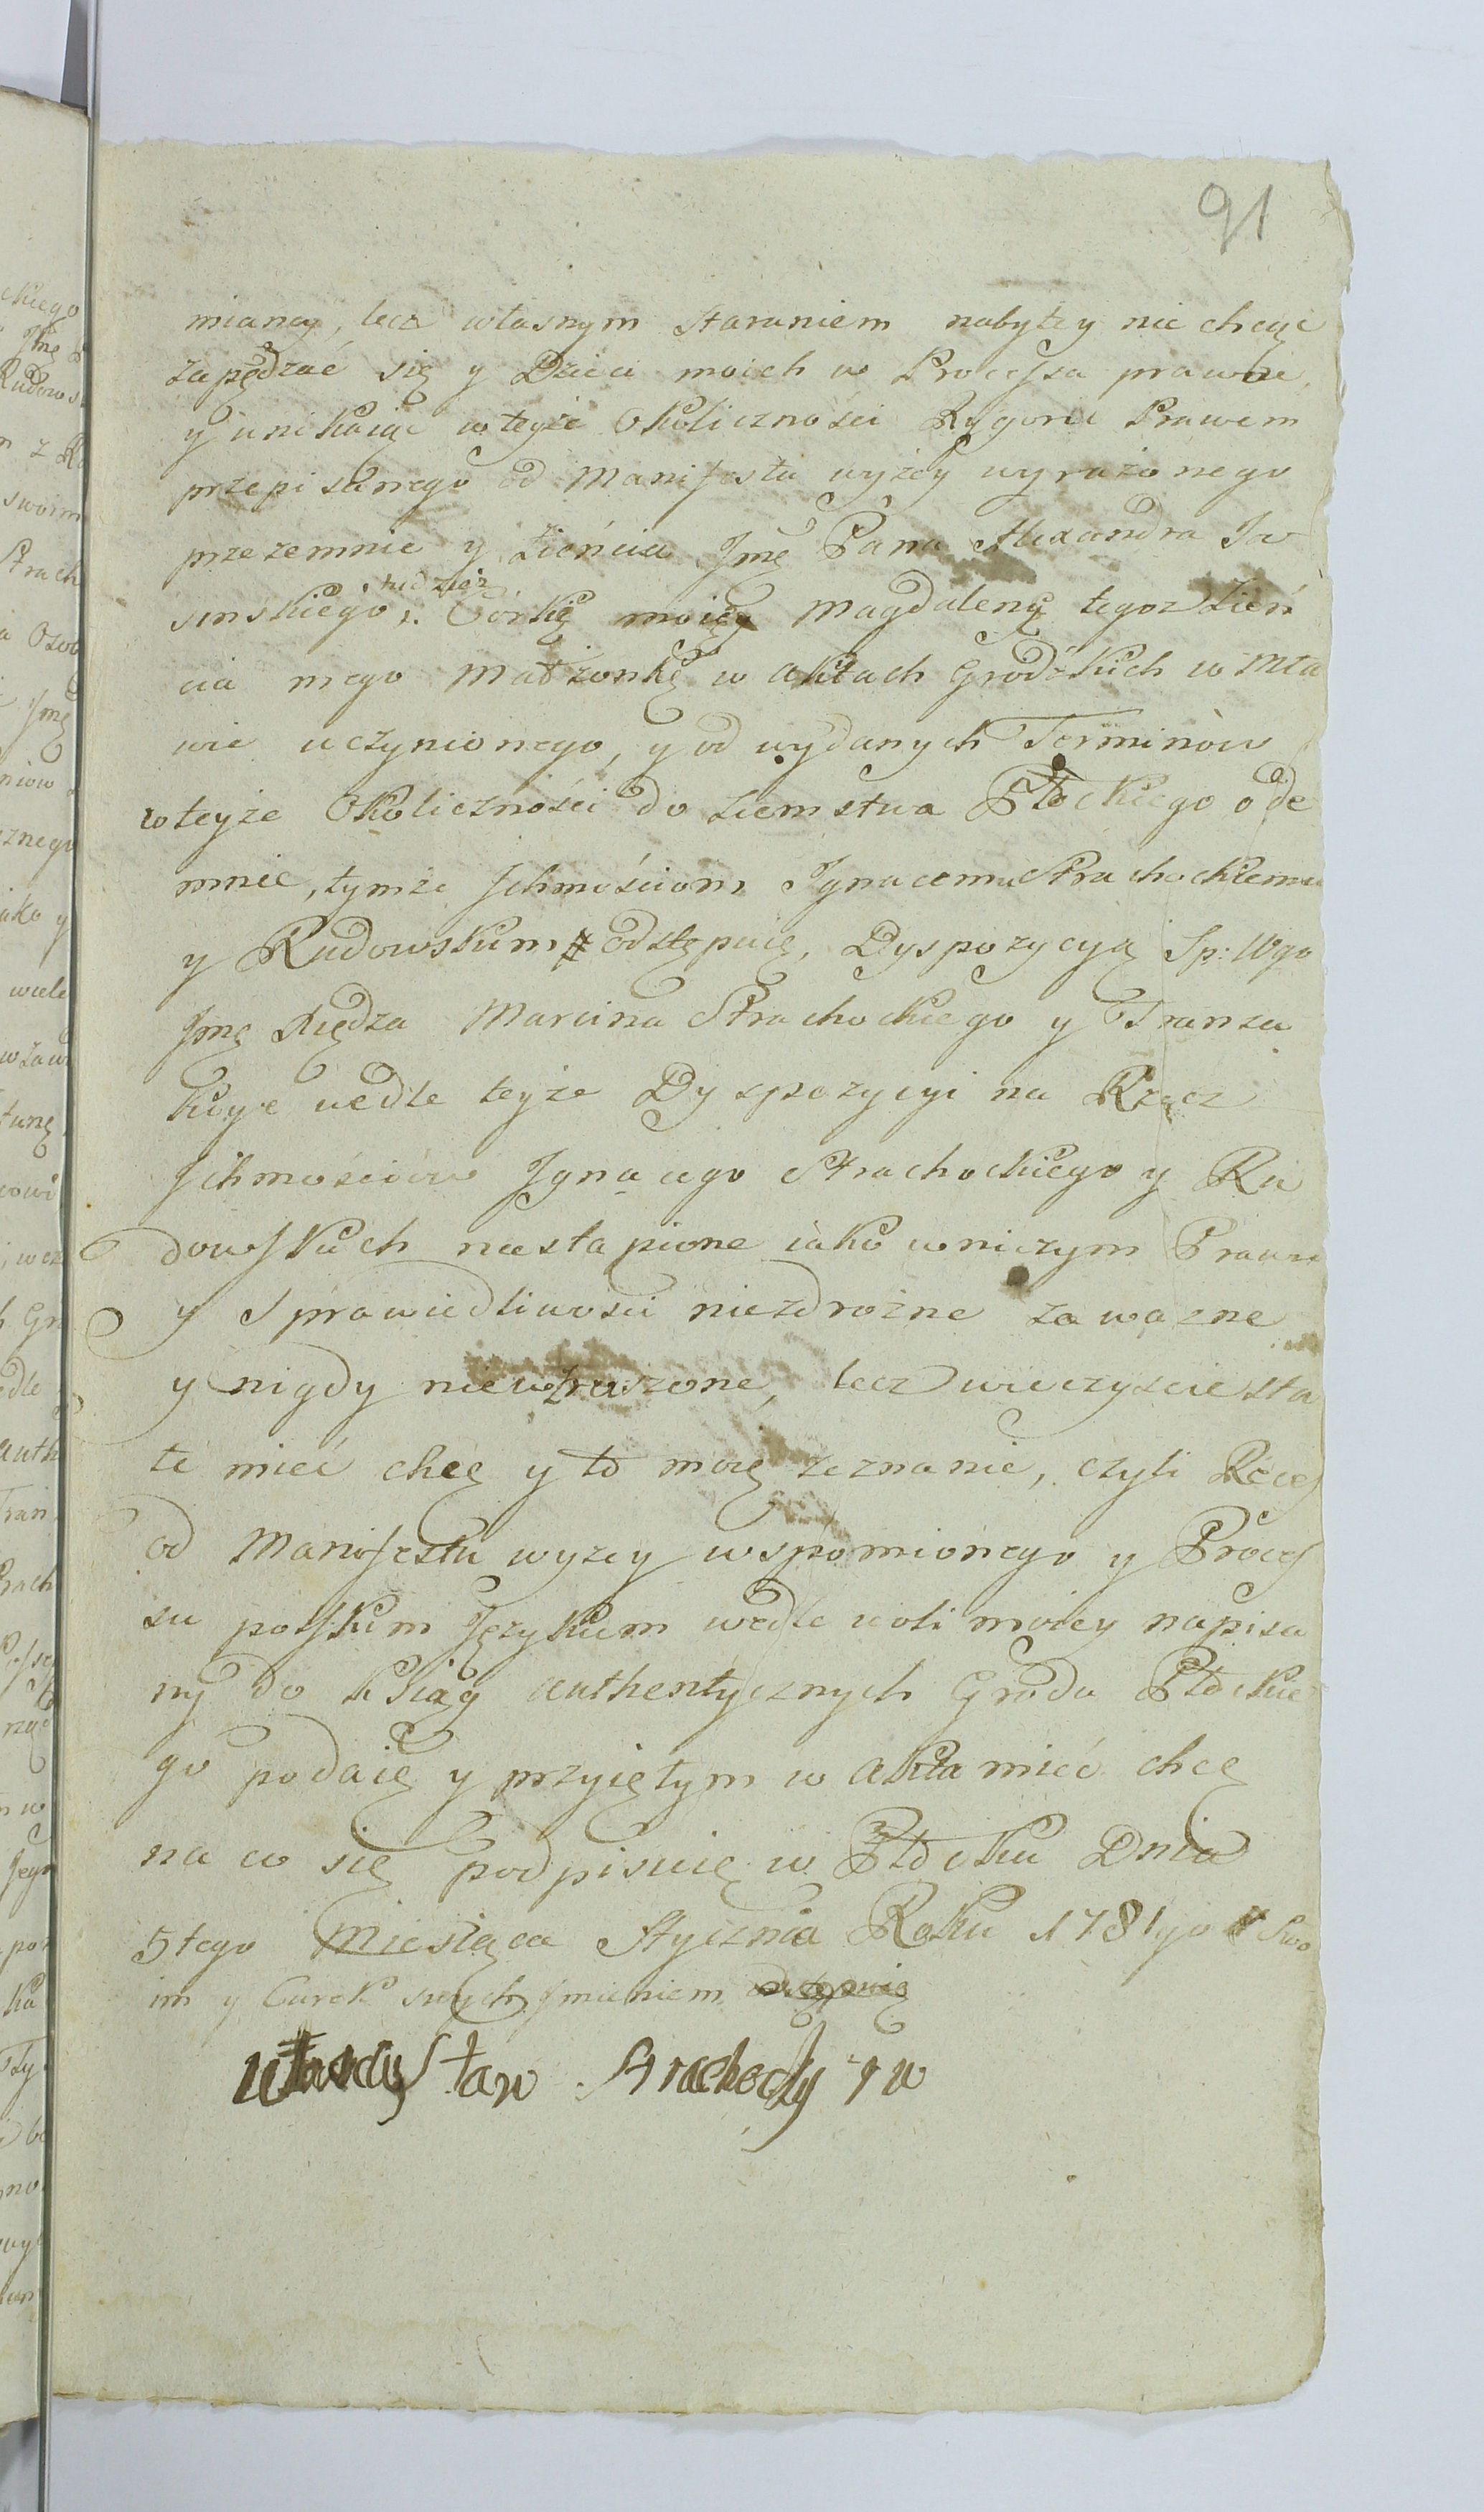 91
mianey, lecz własnym staraniem nabytey nie chcąc
zapędzać się y Dzieci moich w Processa prawne,
y unikaiąc w teyże Okoliczności Rygoru Prawem
przepisanego od Manifestu wyżey wyrażonego
przezemnie y Zięncia Jmę Pana Alexandra Ja
sinskiego, tudziesz Córkę moięy Magdalenę tegoz Zień
cia mego Małżonkę w aktach Grodzkich w Mła
wie uczynionego, y od wydanych Terminòw
w teyże Okoliczności do Ziemstwa Płockiego ode
mnie, tymże Jchmościom Ignacemu Strachockiemu
y Rudowskim odstępuię, Dyspozycyą Sp: Wgo
Jmę Xiędza Marcina Strachockiego y Tranza
kcye wedle teyże Dyspozycyi na Rzecz
Jchmościow Ignacego Strachockiego y Ru
dowskich nastąpione iako w niczym Prawu
y Sprawiedliwosci niezdrożne za wazne
y nigdy niewzruszone, lecz wieczyscie sta
łe mieć chcę y to moię zeznanie, czyli Reces
od Manifestu wyzey wspomionego y Proces
su polskim Językiem wedle woli moiey napisa
ny do Ksiąg authentycznych Grodu Płockie
go podaię y przyiętym w akta mieć chcę
na co się podpisuię w Płocku Dnia
5tego Miesiąca Stycznia Roku 1781go Swo
im y Curek swych Jmieniem odstępuię
Władysław Strachocky rw